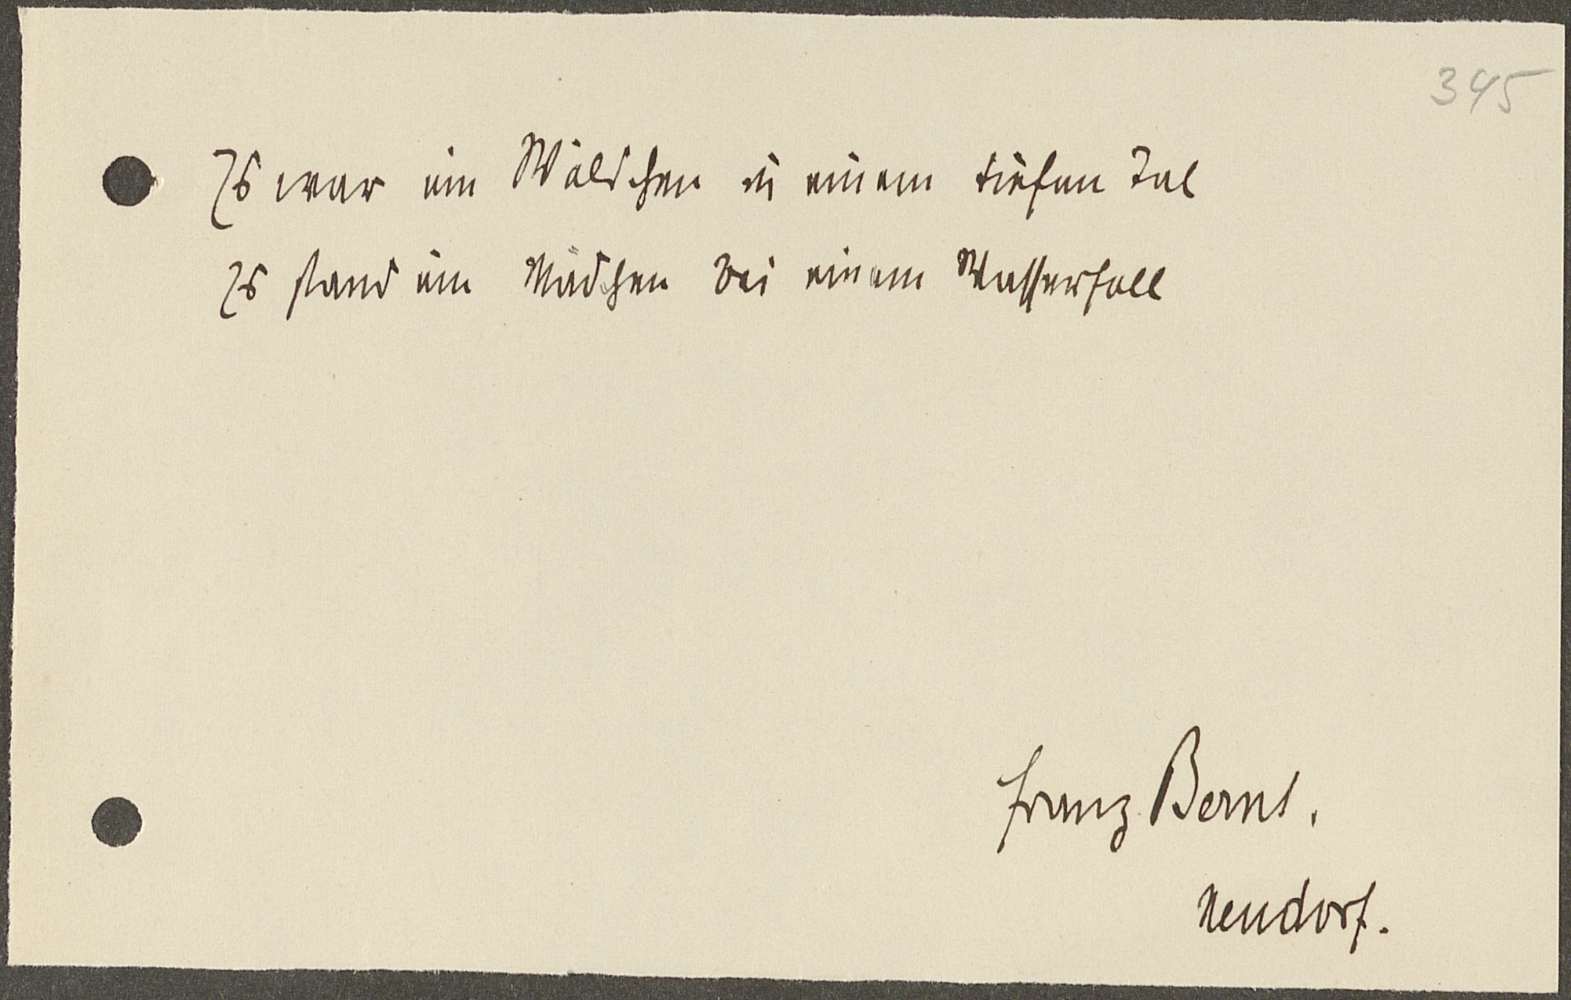 345
Es war ein Wäldchen in einem tiefen Tal
Es stand ein Mädchen bei einem Wasserfall
Franz Bernt.
Neudorf.